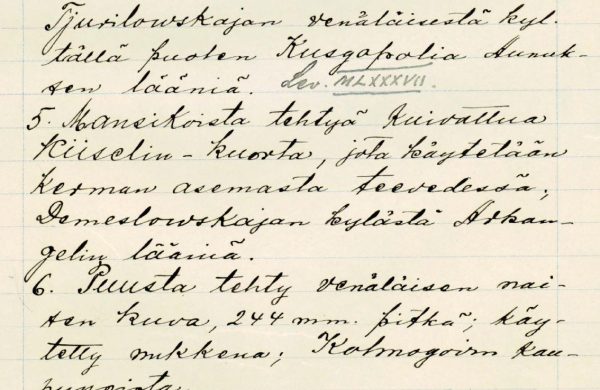 Tjurilowskajan venäläisestä kyl-
tällä puolen Kusgopolia Aunuk-
sen lääniä. Lev. MLXXXVII.
5. Mansikoista tehtyä kuivattua
kiiselin-kuorta, jota käytetään
kerman asemasta teevedessä;
Demeslowskajan kylästä Arkan-
gelin lääniä.
6. Puusta tehty venäläisen nai-
sen kuva, 244 mm. pitkä; käy-
tetty nukkena; Kolmogorin kau-
pungista.